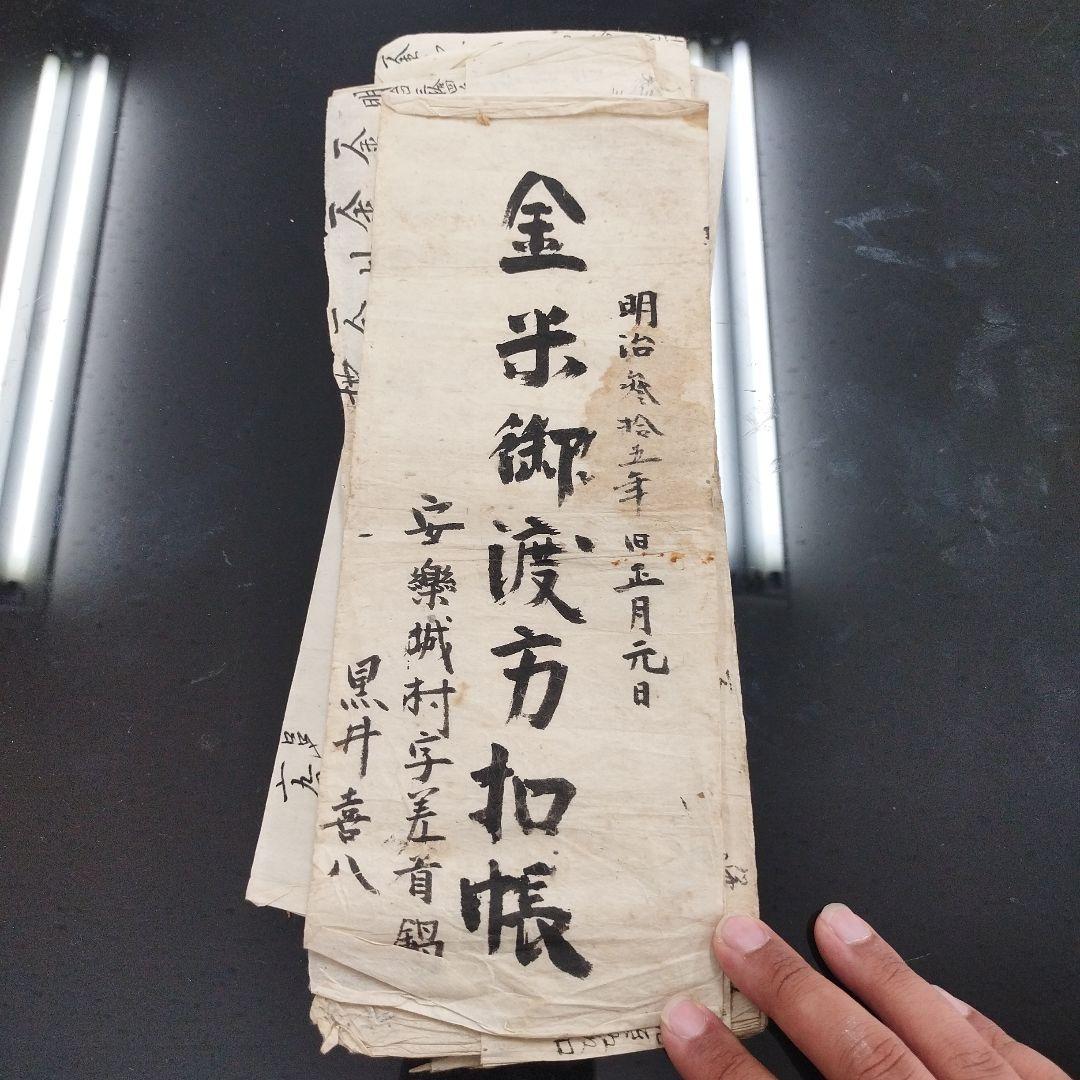 明治參拾五年旧正月元日
金米御渡方扣帳
安樂城村字差首鍋
黒井喜八